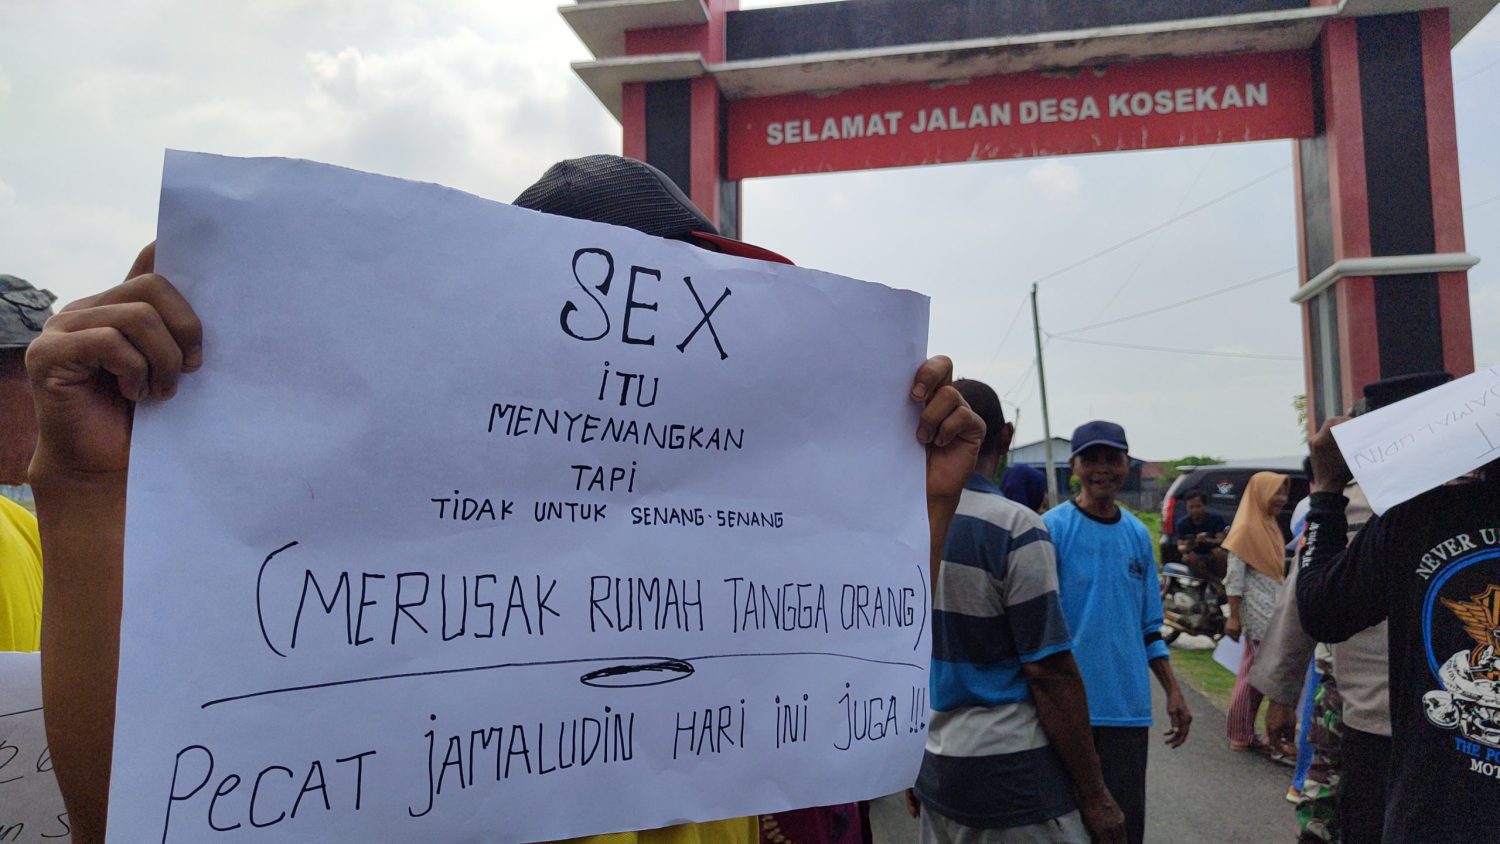 SELAMAT JALAN DESA KOSEKAN
SEX
iTU
MENYENANGKAN
TAPi
TiDAK UNTUK SENANG-SENANG
(MERUSAK RUMAH TANGGA ORANG)
PeCAT jAMALUDiN HARi iNi juGA !!!
JAMALUDIN
NEVER
THE
MOT